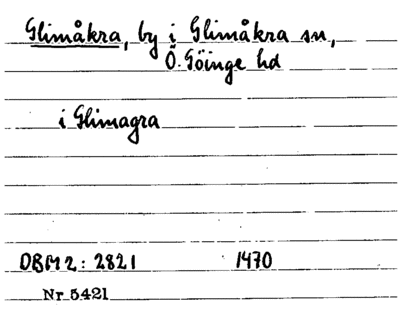 Glimåkra, by i Glimåkra sn,
Ö. Göinge hd
i Glimagra
DBM 2: 2821 1470
Nr 5421